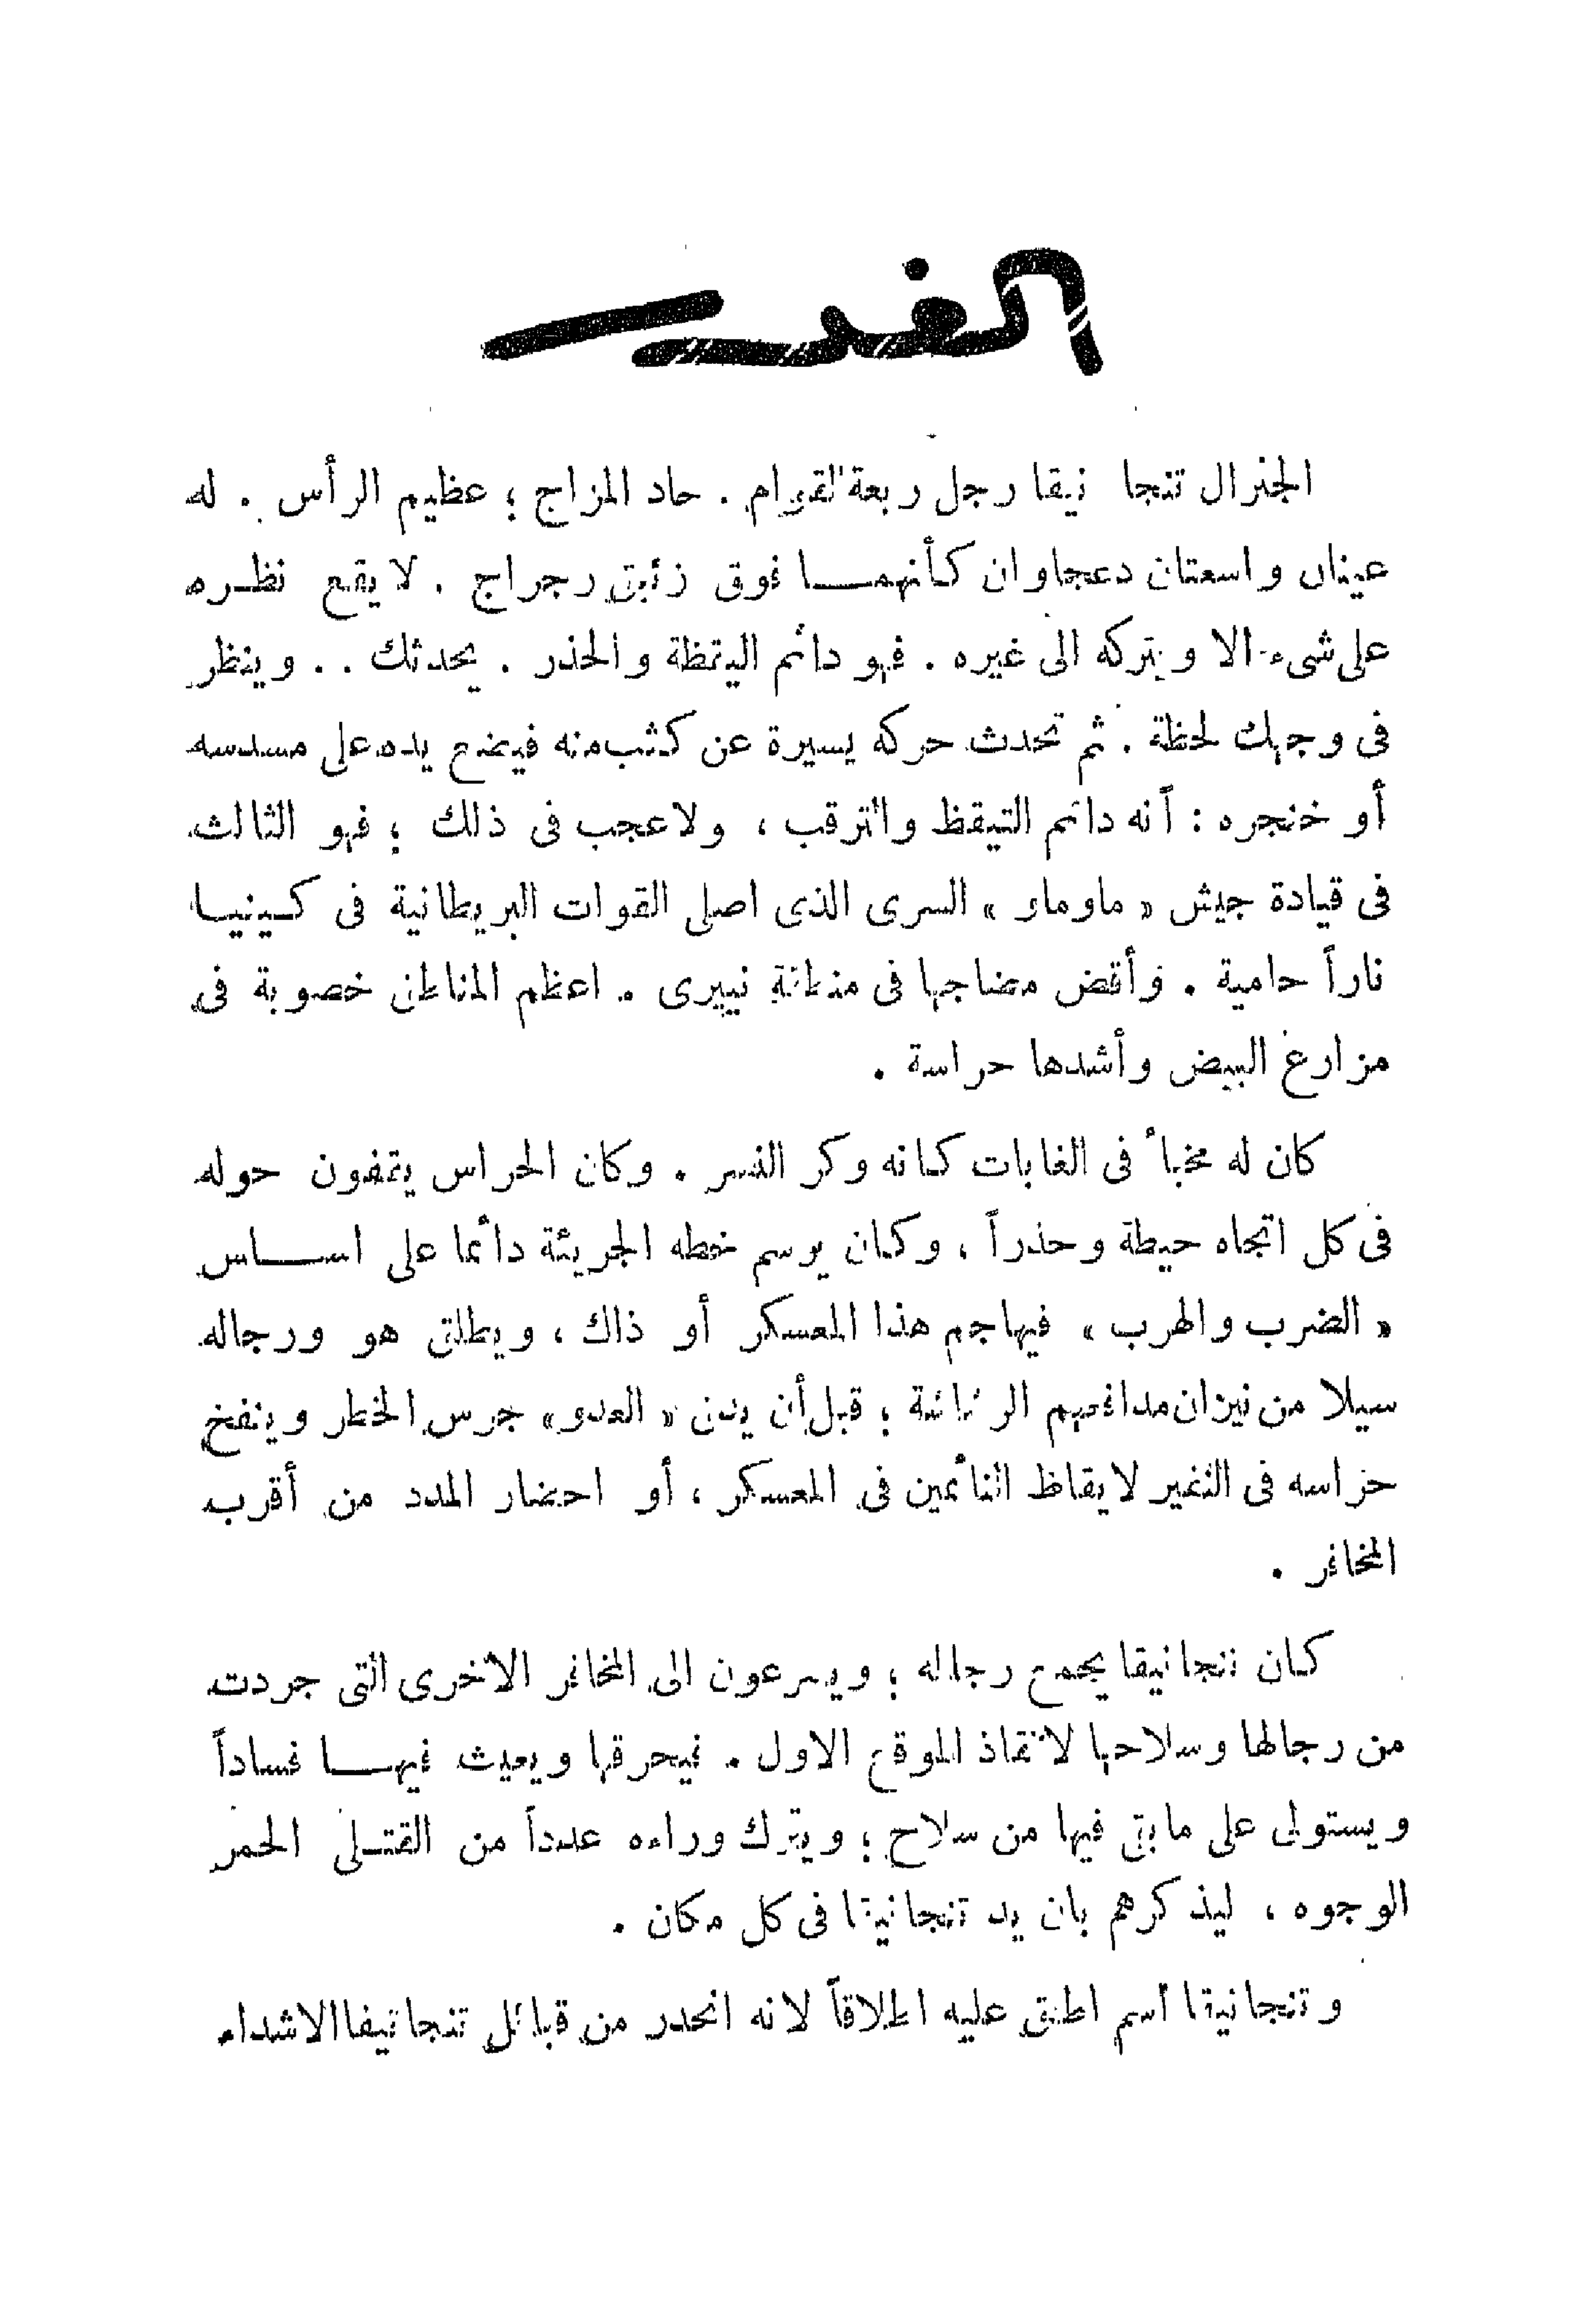 الفدـ
الجنرال تنجا نيقا رجل ربعة القوام . حاد المزاج ؛ عظيم الرأس . له
عينان واسعتان دعجاوان كأنهما فوق زئبق رجراج . لا يقع نظره
على شىء الا ويتركه الى غيره . فهو دائم اليقظة والحذر . يحدثك . . وينظر
فى وجهك لحظة . ثم تحدث حركه يسيرة عن كثب منه فيضع يده على مسدسه
أو خنجره : أنه دائم التيقظ والترقب ، ولا عجب فى ذلك ؛ فهو الثالث
فى قيادة جيش « ماوماو » السرى الذى اصلى القوات البريطانية فى كينيا
ناراً حامية . وأقض مضاجها فى منطقة نييرى . اعظم المناطق خصوبة فى
مزارع البيض وأشدها حراسة .
كان له مخبأ فى الغابات كانه وكر النسر . وكان الحراس يقفون حوله
فى كل اتجاه حيطة وحذراً ، وكان يرسم خططه الجريئة دائما على اساس
« الضرب والهرب » فيهاجم هذا المعسكر أو ذاك ، ويطلق هو ورجاله
سيلا من نيران مدافعهم الرشاشة ؛ قبل أن يدق « العدو » جرس الخطر وينفخ
حراسه فى النفير لايقاظ النائمين فى المعسكر ، أو احضار المدد من أقرب
المخافر .
كان تنجانيقا يجمع رجاله ؛ ويسرعون الى المخافر الاخرى التى جردت
من رجالها وسلاحها لانقاذ الموقع الاول . فيحرقها ويعيث فيها فساداً
ويستولى على مابقى فيها من سلاح ؛ ويترك وراءه عدداً من القتلى الحمر
الوجوه ، ليذكرهم بان يد تنجانيقا فى كل مكان .
وتنجانيقا اسم اطلق عليه اطلاقاً لانه انحدر من قبائل تنجانيقا الاشداء